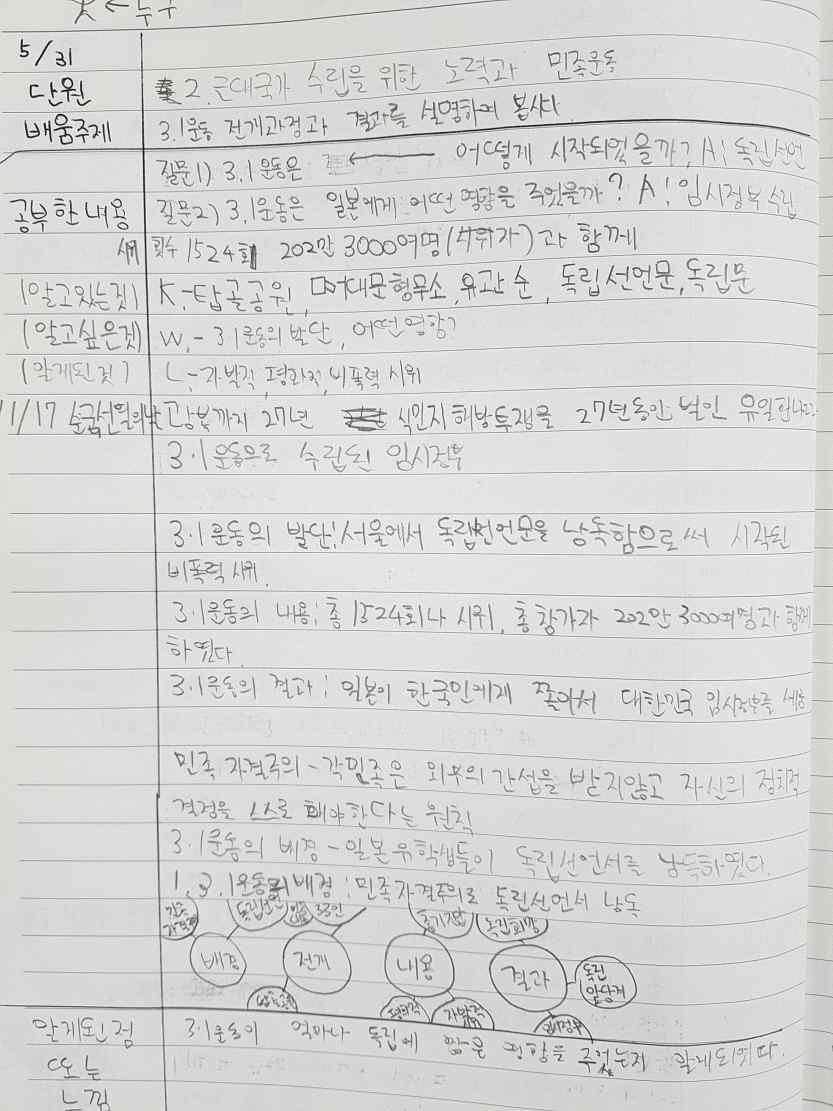 ← 누구
5/31
단원 2. 근대국가 수립을 위한 노력과 민족운동
배움주제 3.1운동 전개과정과 결과를 설명하여 봅시다
질문1) 3.1운동은 ← 어떻게 시작되었을까? A: 독립선언
공부한내용 질문2) 3.1운동은 일본에게 어떤 영향을 주었을까? A: 임시정부 수립
횟수 1524회 202만 3000여명(시위자)과 함께
(알고있는것) K,-탑골공원, 서대문형무소, 유관순, 독립선언문, 독립문
(알고싶은것) W,-3.1운동의 발단, 어떤영향?
(알게된것) L,-자발적, 평화적, 비폭력 시위
11/17 순국선열의날 광복까지 27년 식민지 해방투쟁을 27년동안 벌인 유일합니다
3.1운동으로 수립된 임시정부
3.1운동의 발단: 서울에서 독립선언문을 낭독함으로써 시작된
비폭력 시위.
3.1운동의 내용: 총 1524회나 시위, 총 참가자 202만 3000여명과 함께
하였다.
3.1운동의 결과: 일본이 한국인에게 쫄아서 대한민국 임시정부를 세움
민족 자결주의-각민족은 외부의 간섭을 받지않고 자신의 정치적
결정을 스스로 해야한다는 원칙
3.1운동의 배경-일본유학생들이 독립선언서를 낭독하였다.
1, 3.1운동의 배경: 민족자결주의로 독립선언서 낭독
민족자결 독립선언 33인 독립희망
배경 전개 내용 결과 독립 앞당겨
평화적 자발적
알게된점 3.1운동이 얼마나 독립에 많은 영향을 주었는지 알게되었다.
또는
느낌